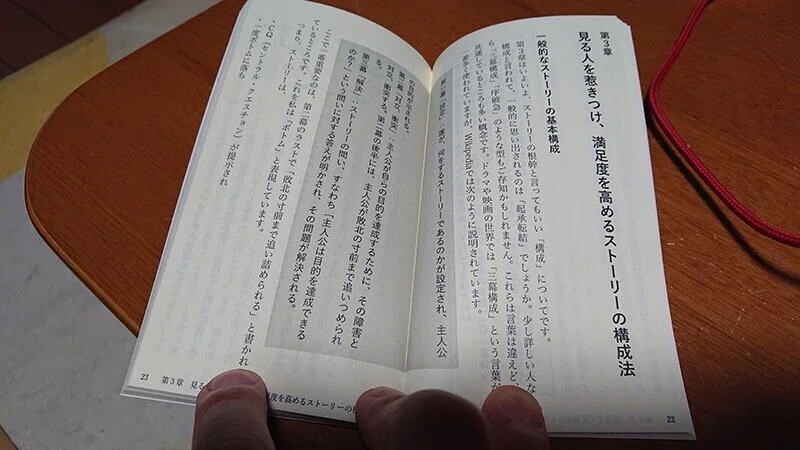 第3章
見る人を惹きつけ、満足度を高めるストーリーの構成法
一般的なストーリーの基本構成
第3章はいよいよ、ストーリーの根幹と言ってもいい「構成」についてです。
構成と言われて、一般的に思い出されるのは「起承転結」でしょうか。少し詳しい人な
ら「三幕構成」「序破急」のような型もご存知かもしれません。これらは言葉は違えど、
共通しているところも多い概念です。ドラマや映画の世界では「三幕構成」という言葉が
一番多く使われていますが、Wikipediaでは次のように説明されています。
第一幕「設定」：誰が、何をするストーリーであるのかが設定され、主人公
の目的が示される。
第二幕「対立、衝突」：主人公が自らの目的を達成するために、その障害と
対立、衝突する。第二幕の後半には、主人公が敗北の寸前まで追いつめられ
る。
第三幕「解決」：ストーリーの問い、すなわち「主人公は目的を達成できる
のか？」という問いに対する答えが明かされ、その問題が解決される。
ここで一番重要なのは、第二幕のラストで「敗北の寸前まで追い詰められる」と書かれ
ているところです。これを私は「ボトム」と表現しています。
つまり、ストーリーは、
・CQ（セントラル・クエスチョン）が提示され
・一度ボトムに落ち
23 第3章 見る
度を高めるストーリーの構
22